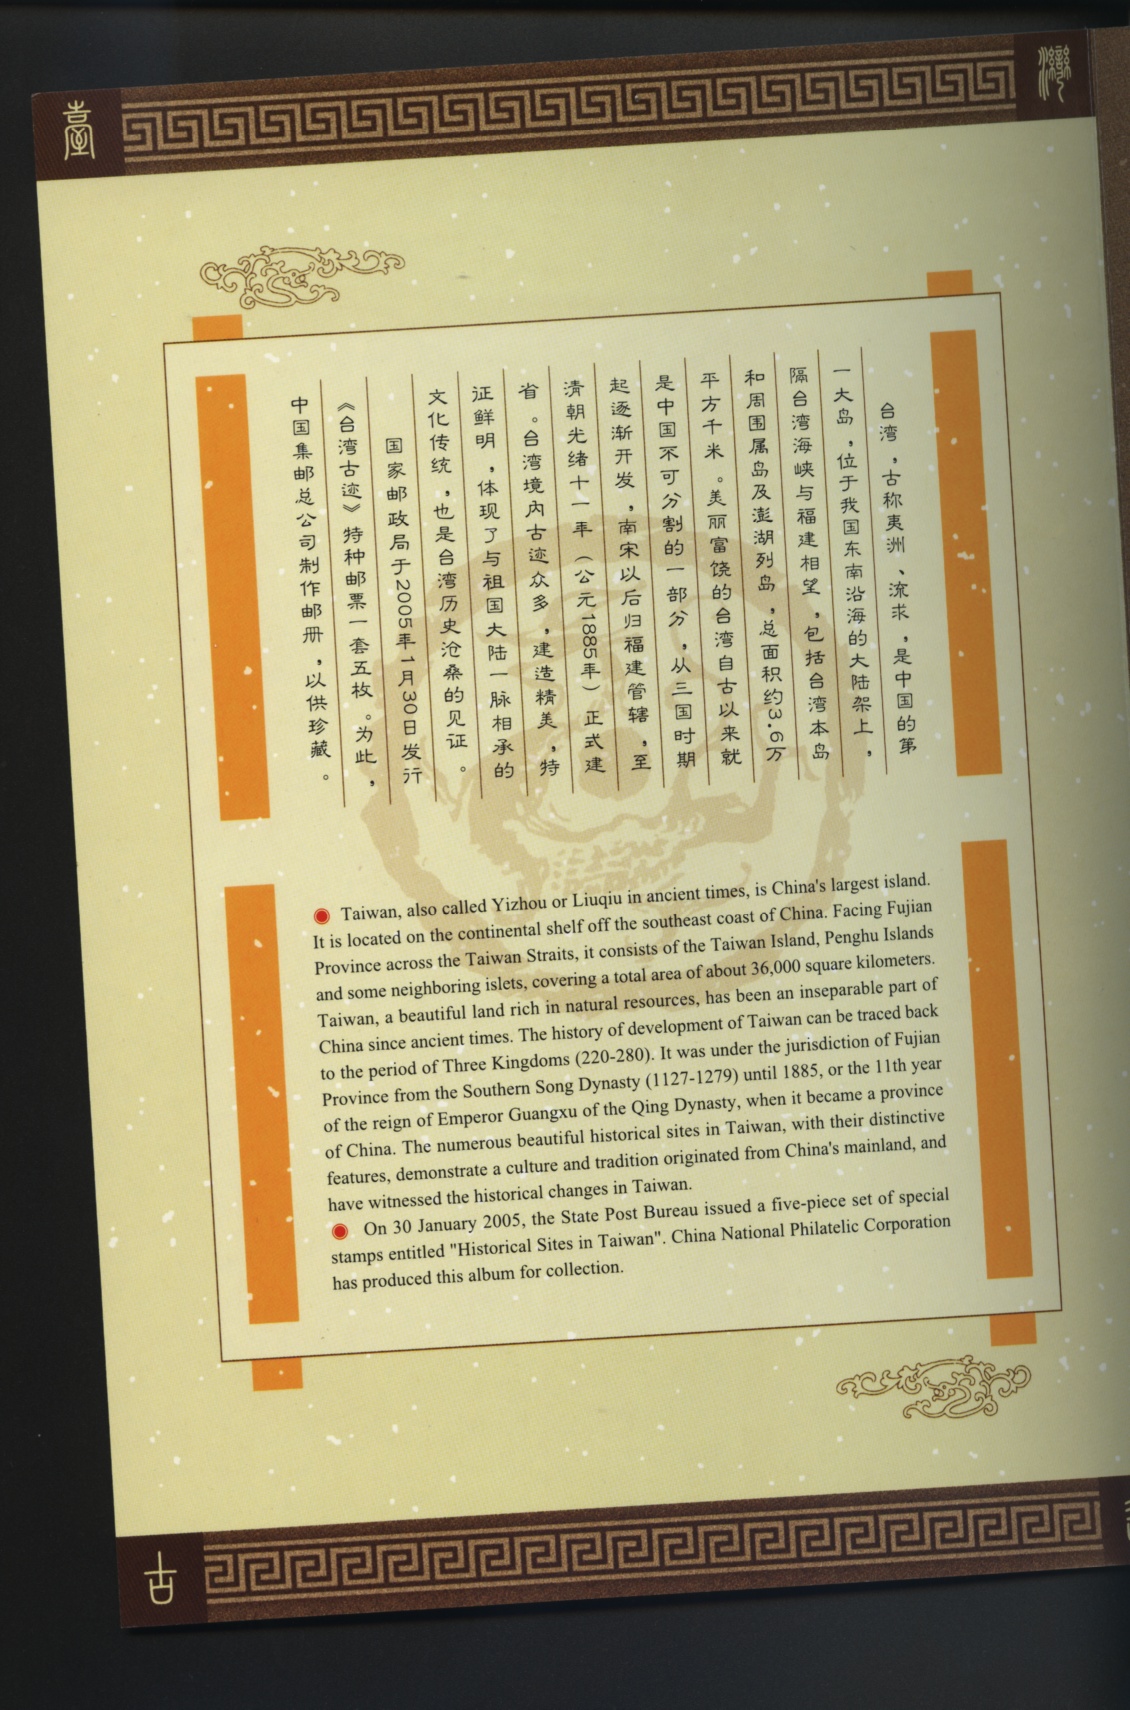 臺
灣
台湾，古称夷洲、流求，是中国的第
一大岛，位于我国东南沿海的大陆架上，
隔台湾海峡与福建相望，包括台湾本岛
和周围属岛及澎湖列岛，总面积约3.6万
平方千米。美丽富饶的台湾自古以来就
是中国不可分割的一部分，从三国时期
起逐渐开发，南宋以后归福建管辖，至
清朝光绪十一年（公元1885年）正式建
省。台湾境内古迹众多，建造精美，特
证鲜明，体现了与祖国大陆一脉相承的
文化传统，也是台湾历史沧桑的见证。
国家邮政局于2005年1月30日发行
《台湾古迹》特种邮票一套五枚。为此，
中国集邮总公司制作邮册，以供珍藏。
Taiwan, also called Yizhou or Liuqiu in ancient times, is China's largest island.
It is located on the continental shelf off the southeast coast of China. Facing Fujian
Province across the Taiwan Straits, it consists of the Taiwan Island, Penghu Islands
and some neighboring islets, covering a total area of about 36,000 square kilometers.
Taiwan, a beautiful land rich in natural resources, has been an inseparable part of
China since ancient times. The history of development of Taiwan can be traced back
to the period of Three Kingdoms (220-280). It was under the jurisdiction of Fujian
Province from the Southern Song Dynasty (1127-1279) until 1885, or the 11th year
of the reign of Emperor Guangxu of the Qing Dynasty, when it became a province
of China. The numerous beautiful historical sites in Taiwan, with their distinctive
features, demonstrate a culture and tradition originated from China's mainland, and
have witnessed the historical changes in Taiwan.
On 30 January 2005, the State Post Bureau issued a five-piece set of special
stamps entitled "Historical Sites in Taiwan". China National Philatelic Corporation
has produced this album for collection.
古